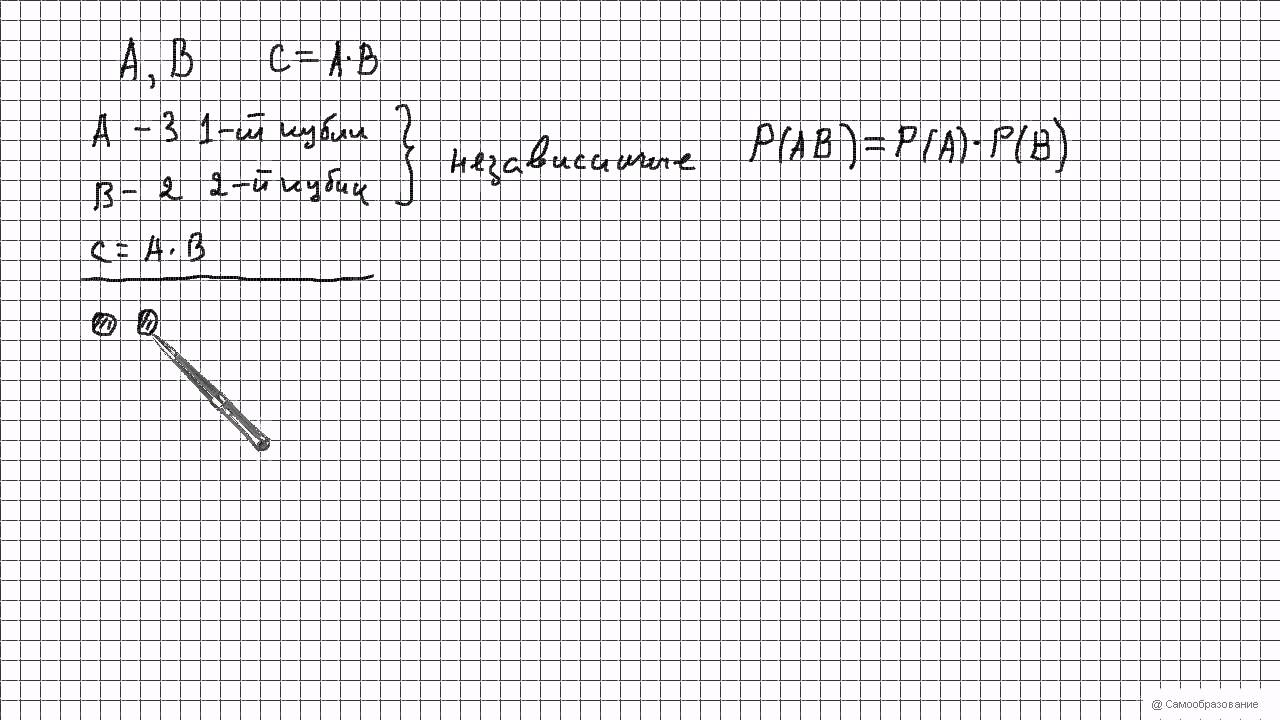 A, B C = A·B
A – 3 1-й кубик
B – 2 2-й кубик
независимые P(AB) = P(A)·P(B)
C = A·B
@ Самообразование